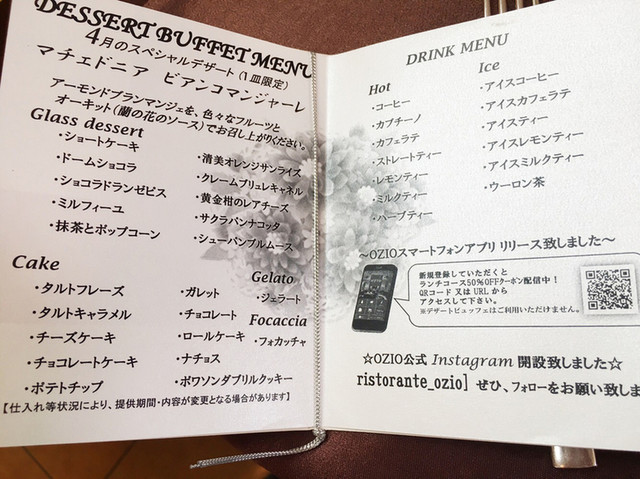 DESSERT BUFFET MENU
4月のスペシャルデザート(1皿限定)
マチェドニア ビアンコマンジャーレ
アーモンドブランマンジェを、色々なフルーツと
オーキット(蘭の花のソース)でお召し上がりください。
Glass dessert
・ショートケーキ
・ドームショコラ
・ショコラドランゼピス
・ミルフィーユ
・抹茶とポップコーン
・清美オレンジサンライズ
・クレームブリュレキャネル
・黄金柑のレアチーズ
・サクラパンナコッタ
・シューパンブルムース
Cake
・タルトフレーズ
・タルトキャラメル
・チーズケーキ
・チョコレートケーキ
・ポテトチップ
・ガレット
・チョコレート
・ロールケーキ
・ナチョス
・ボワソンダブリルクッキー
Gelato
・ジェラート
Focaccia
・フォカッチャ
【仕入れ等状況により、提供期間・内容が変更となる場合があります】
DRINK MENU
Hot
・コーヒー
・カプチーノ
・カフェラテ
・ストレートティー
・レモンティー
・ミルクティー
・ハーブティー
Ice
・アイスコーヒー
・アイスカフェラテ
・アイスティー
・アイスレモンティー
・アイスミルクティー
・ウーロン茶
〜OZIOスマートフォンアプリ リリース致しました〜
新規登録していただくと
ランチコース50%OFFクーポン配信中!
QRコード 又は URL から
アクセスして下さい。
※デザートビュッフェはご利用いただけません。
☆OZIO公式 Instagram 開設致しました☆
ristorante_ozio] ぜひ、フォローをお願い致しま